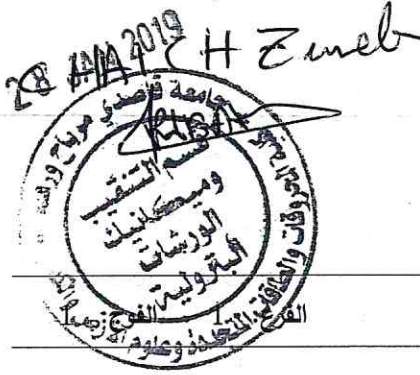 28 2019
HAICH Zineb
جامعة قاصدي مرباح ورقلة
قسم التنقيب
وميكانيك
الورشات
البترولية
المحروقات والطاقات المتجددة وعلوم الأرض والكون
الفوج 1 الفوج